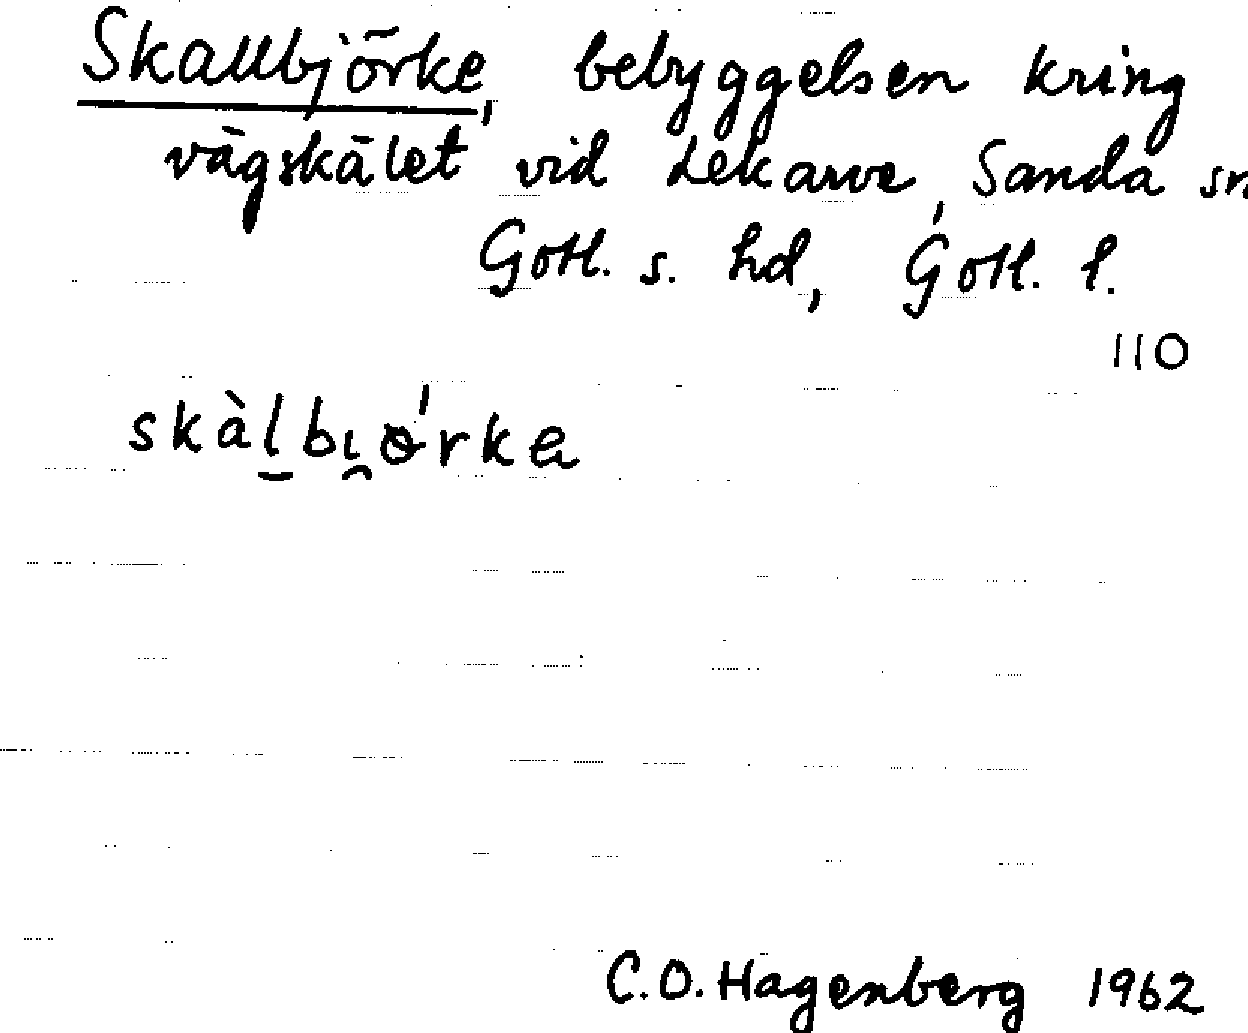 Skallbjörke, bebyggelsen kring
vägskälet vid Lekarve, Sanda sn
Gotl. s. hd, Gotl. l.
110
skàl̠bi̯ǿrkɐ
C.O. Hagenberg 1962